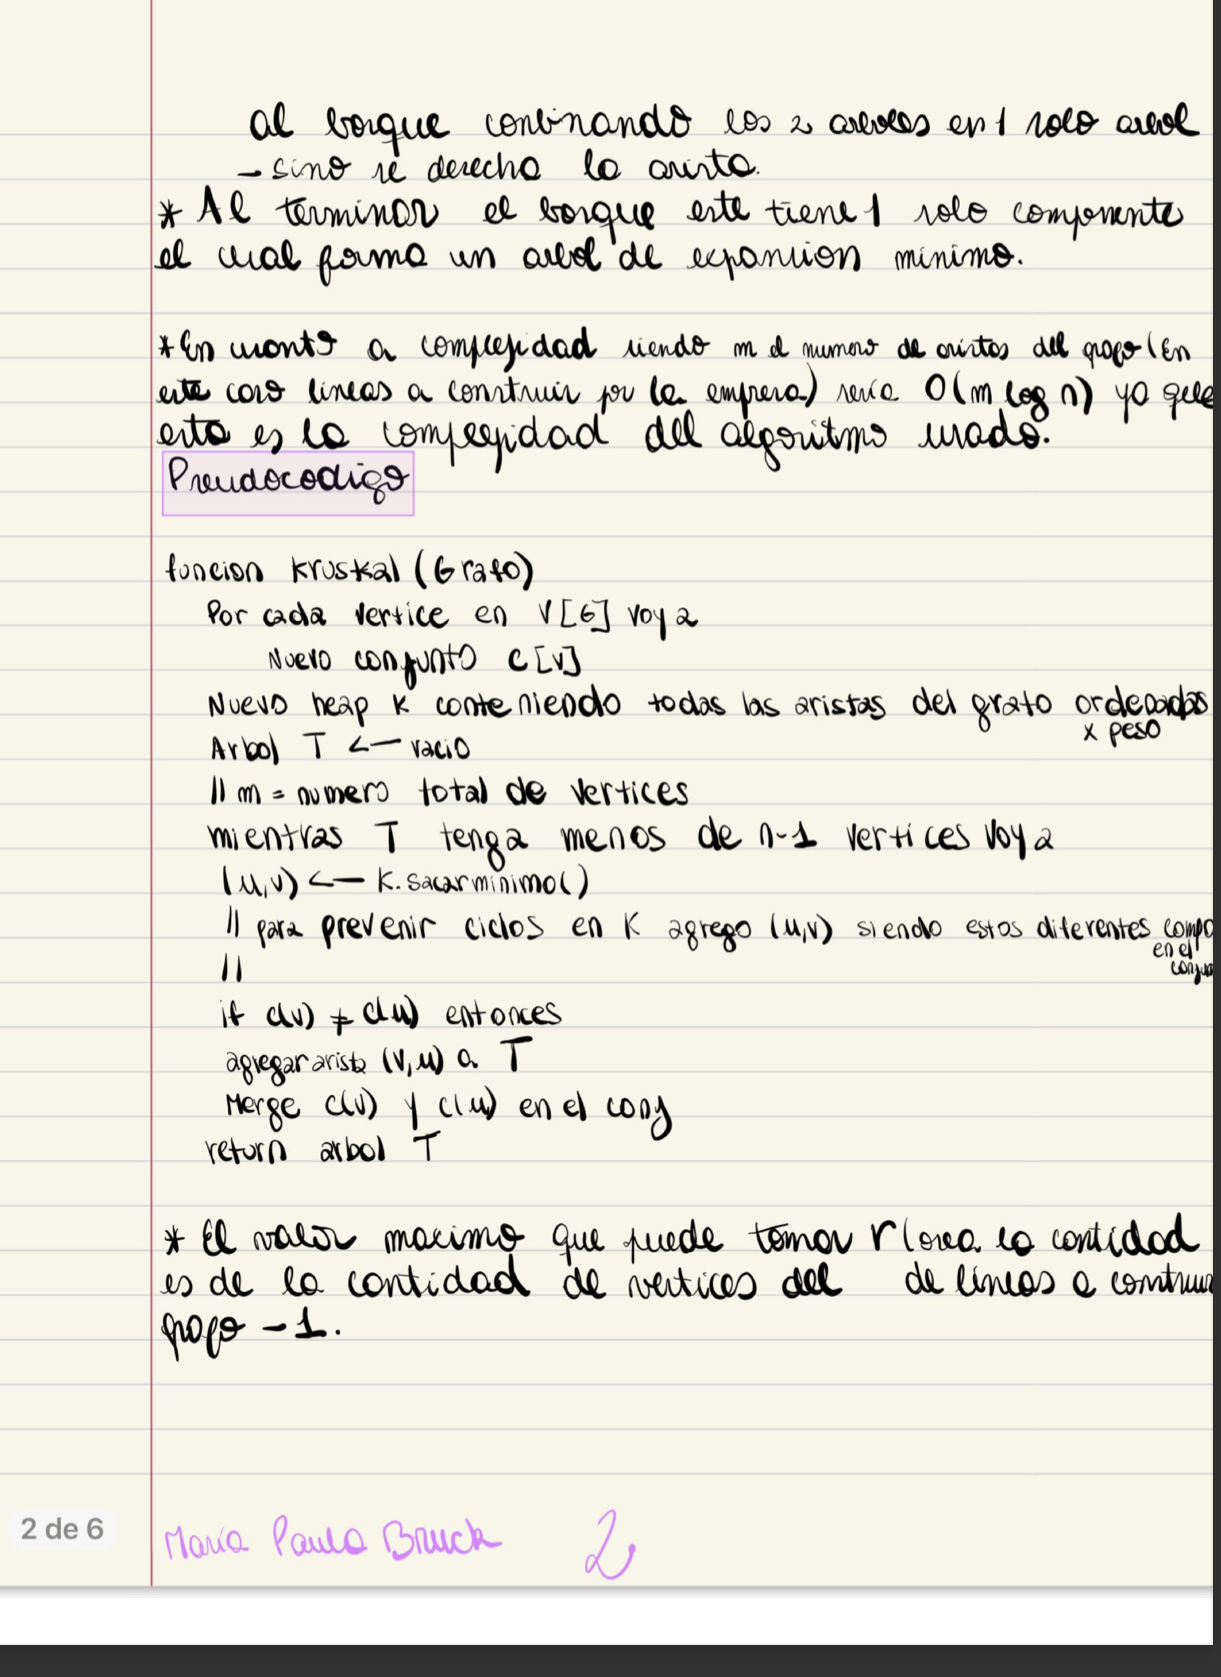 al bosque conbinando los 2 arboles en 1 solo arbol
- sino se desecha la arista.
* Al terminar el bosque este tiene 1 solo componente
el cual forma un arbol de expansion minimo.
* En cuanto a complejidad siendo m el numero de aristas del grafo (En
este caso lineas a construir por la empresa) sería O(m log n) ya que
esta es la complejidad del algoritmo usado.
Pseudocodigo
funcion kruskal (Grafo)
Por cada vertice en V[G] voy a
Nuevo conjunto C[v]
Nuevo heap K conteniendo todas las aristas del grafo ordenadas
x peso
Arbol T <— vacio
// m = numero total de vertices
mientras T tenga menos de n-1 vertices voy a
(u,v) <— K.sacarminimo()
// para prevenir ciclos en K agrego (u,v) siendo estos diferentes comp
en el
conju
//
if c(v) ≠ c(u) entonces
agregar arista (v,u) a T
Merge c(v) y c(u) en el conj
return arbol T
* El valor maximo que puede tomar r (osea la cantidad
es de la cantidad de vertices del de líneas a construi
grafo - 1.
2 de 6
María Paula Bruck 2